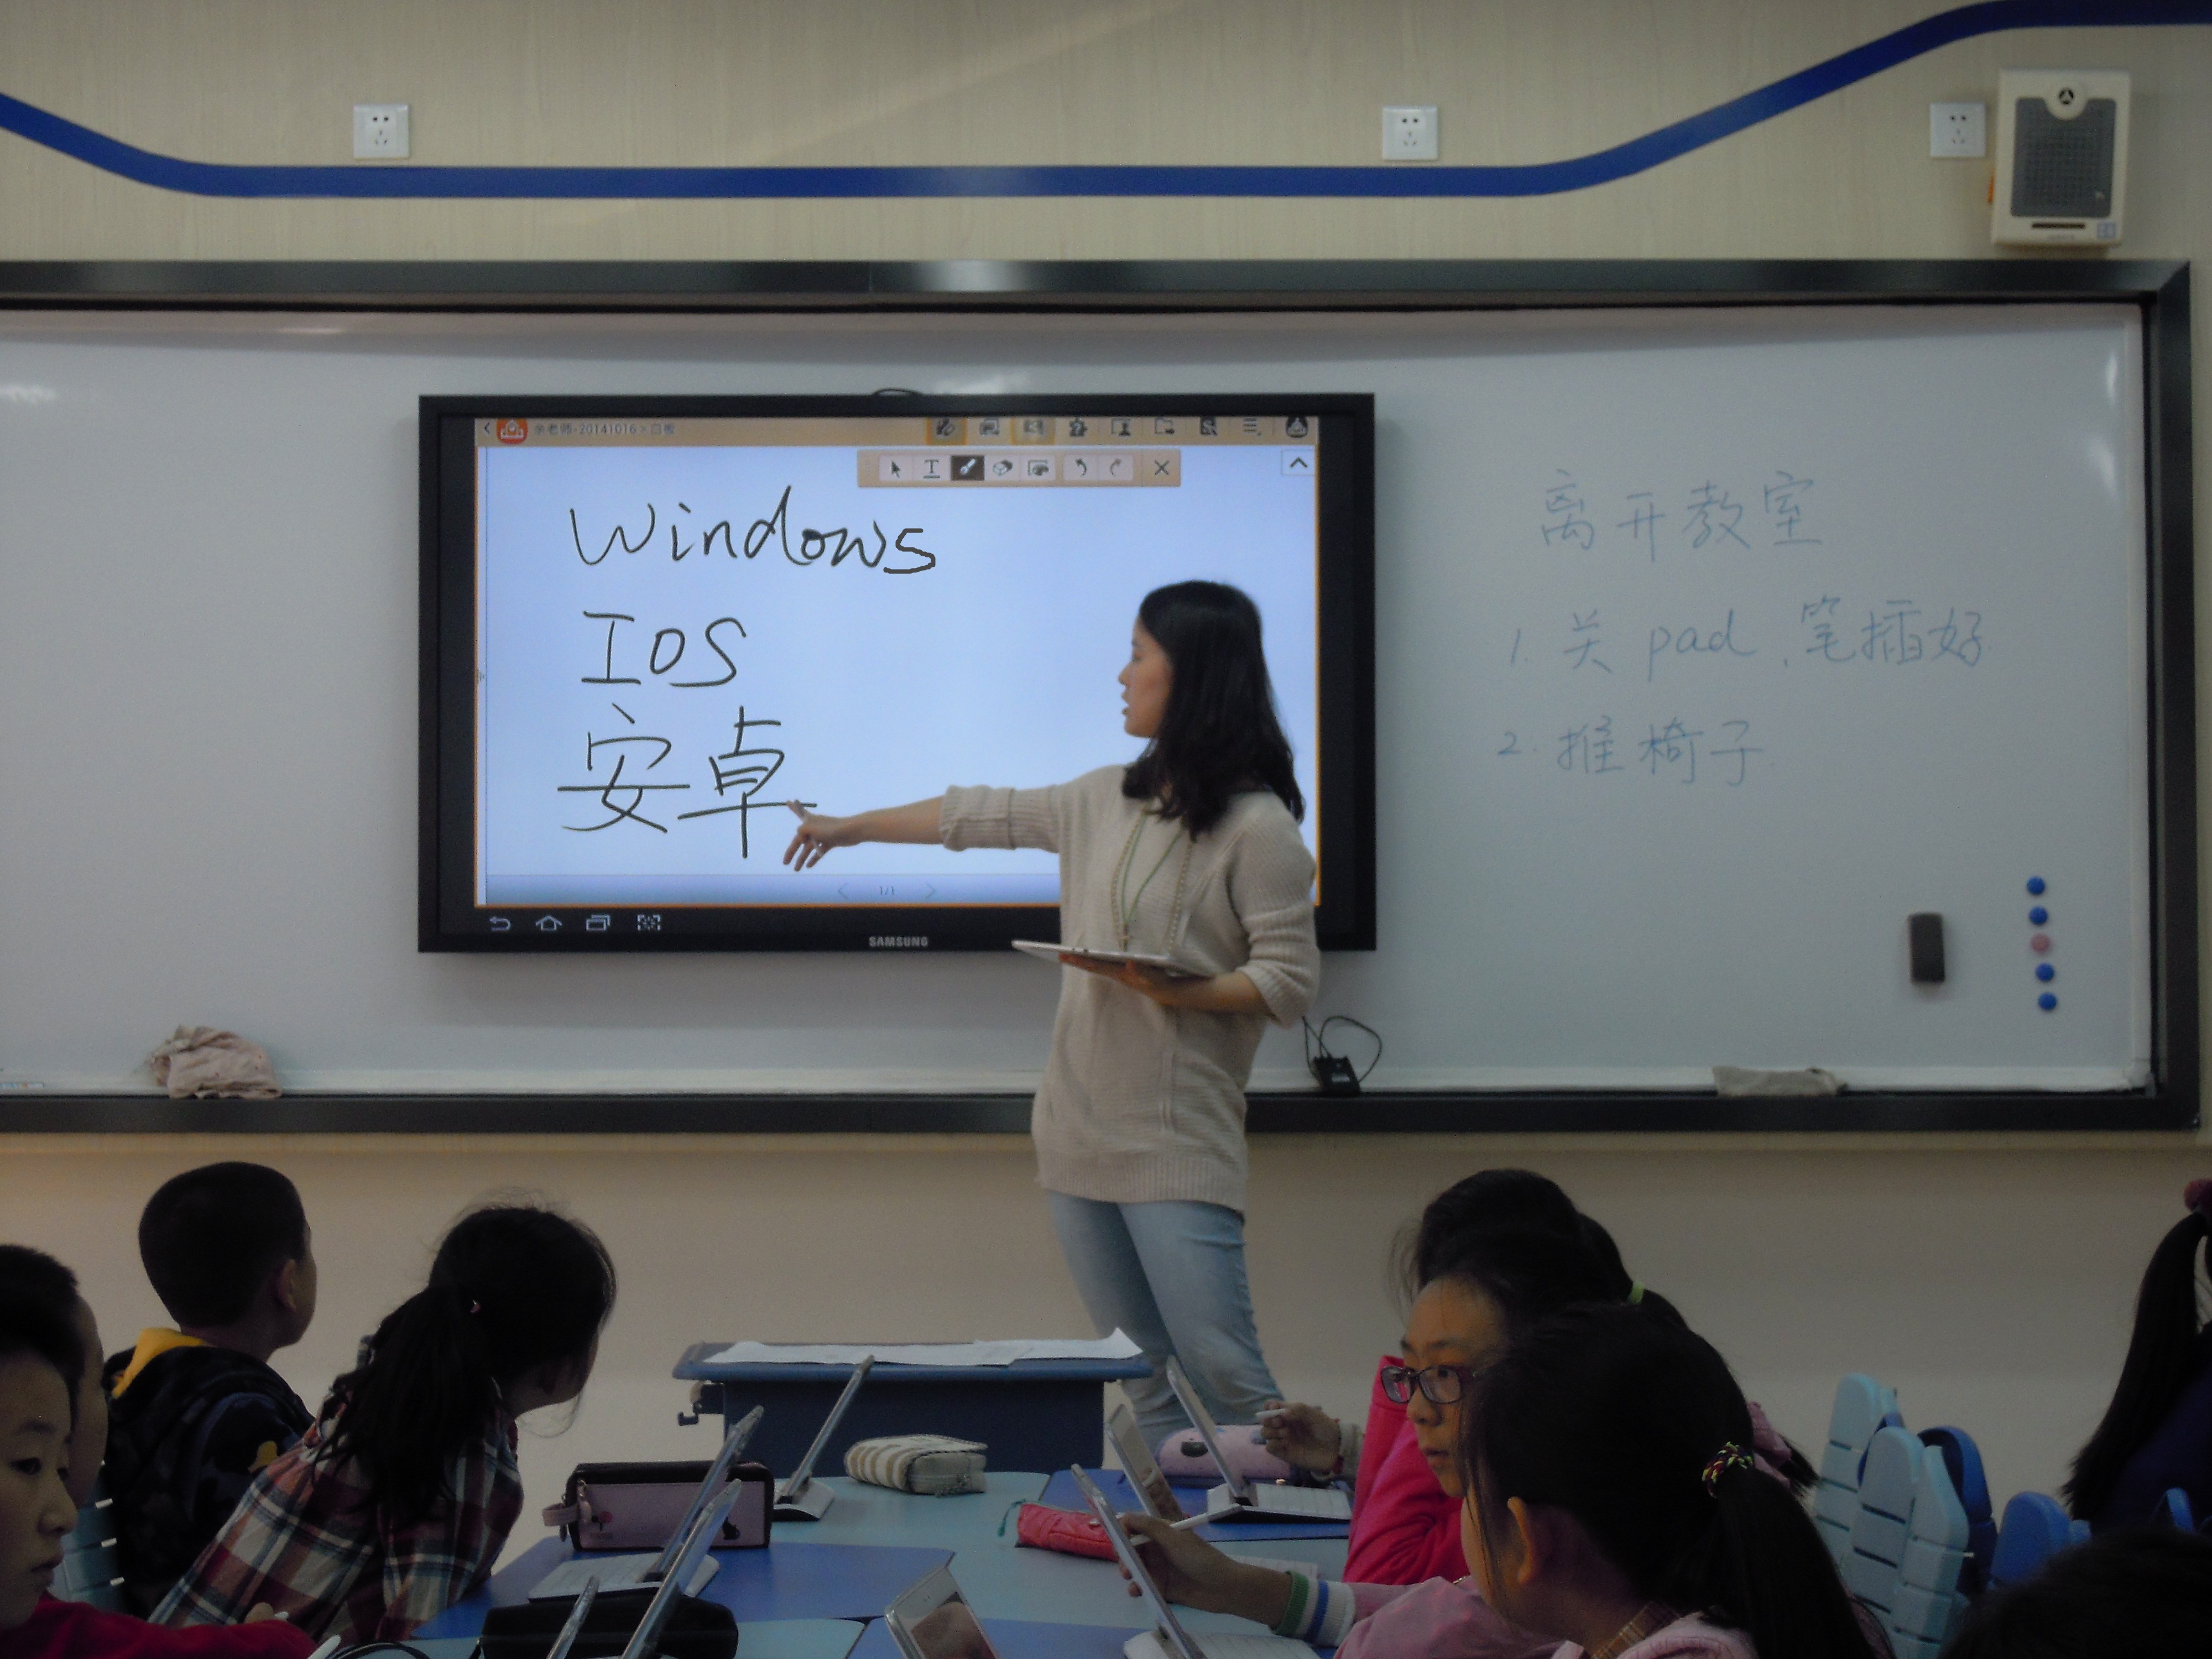 余老师-20141016>白板
Windows
IOS
安卓
1/1
SAMSUNG
离开教室
1. 关 pad、笔插好
2. 推椅子